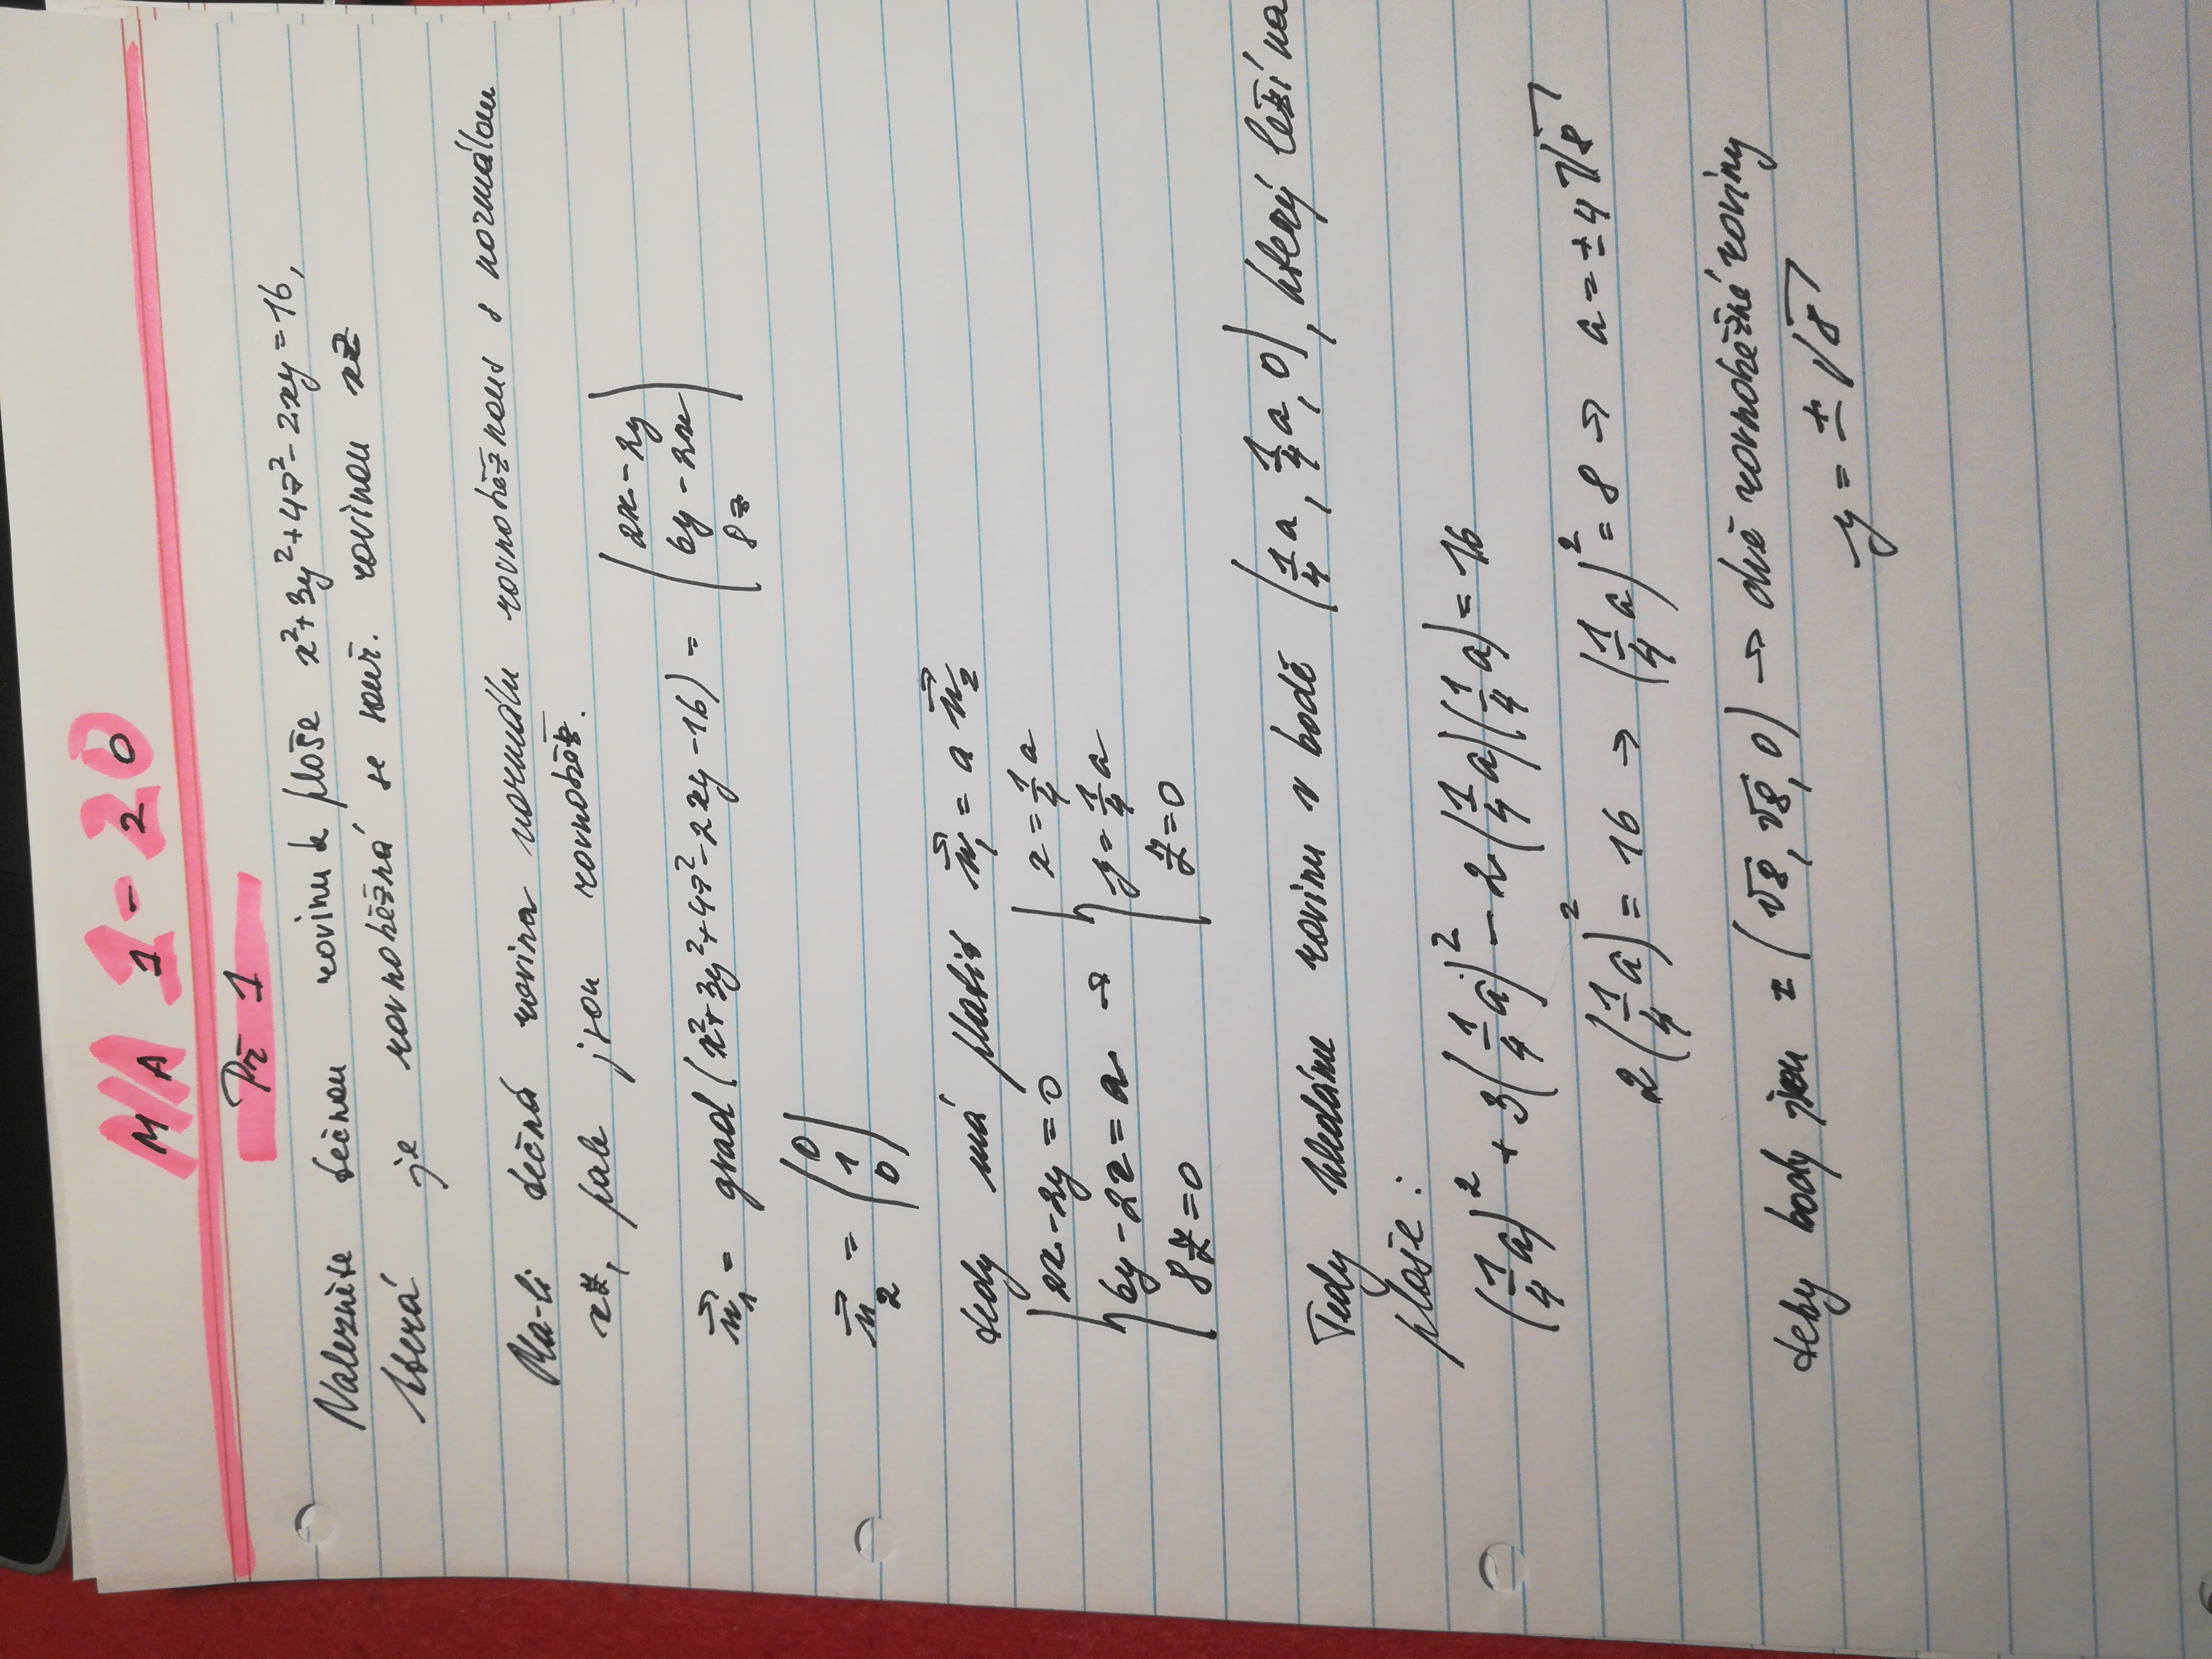 MA 1-20
Př 1
Nalezněte tečnou rovinu k ploše x²+3y²+4z²-2xy=16,
která je rovnoběžná se souř. rovinou xz
Má-li tečná rovina normálu rovnoběžnou s normálou
xz, pak jsou rovnoběž.
n⃗₁ = grad (x²+3y²+4z²-2xy-16) = (2x-2y, 6y-2x, 8z)
n⃗₂ = (0, 1, 0)
tedy má platit n⃗₁ = a n⃗₂
2x-2y=0 x=¼a
6y-2x=a → y=¼a
8z=0 z=0
Tedy hledáme rovinu v bodě (¼a, ¼a, 0), který leží na
ploše:
(¼a)² + 3(¼a)² - 2(¼a)(¼a) = 16
2(¼a)² = 16 → (¼a)² = 8 → a = ±4√8
tedy body jsou ±(√8, √8, 0) → dvě rovnoběžné roviny
y = ±√8